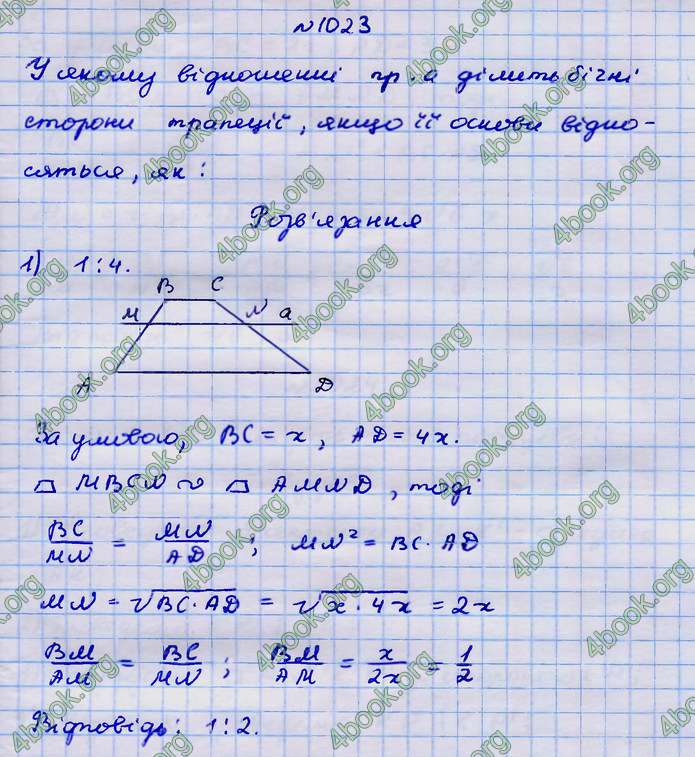 №1023
У якому відношенні пр. а ділить бічні
сторони трапеції, якщо її основи відно-
сяться, як:
Розв'язання
1) 1:4.
B C
M N a
A D
За умовою, BC = x, AD = 4x.
⏢ MBCN ∾ ⏢ AMND, тоді
BC/MN = MN/AD; MN² = BC·AD
MN = √BC·AD = √x·4x = 2x
BM/AM = BC/MN; BM/AM = x/2x = 1/2
Відповідь: 1:2.
4book.org